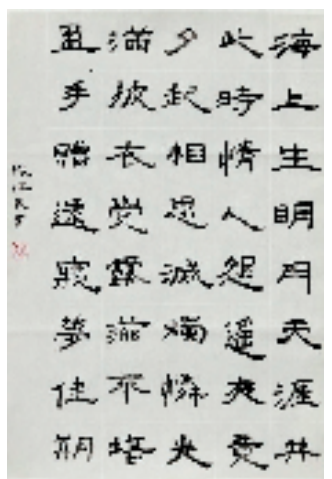 海上生明月天涯共
此時情人怨遥夜竟
夕起相思滅燭憐光
滿披衣覺露滋不堪
盈手贈還寢夢佳期